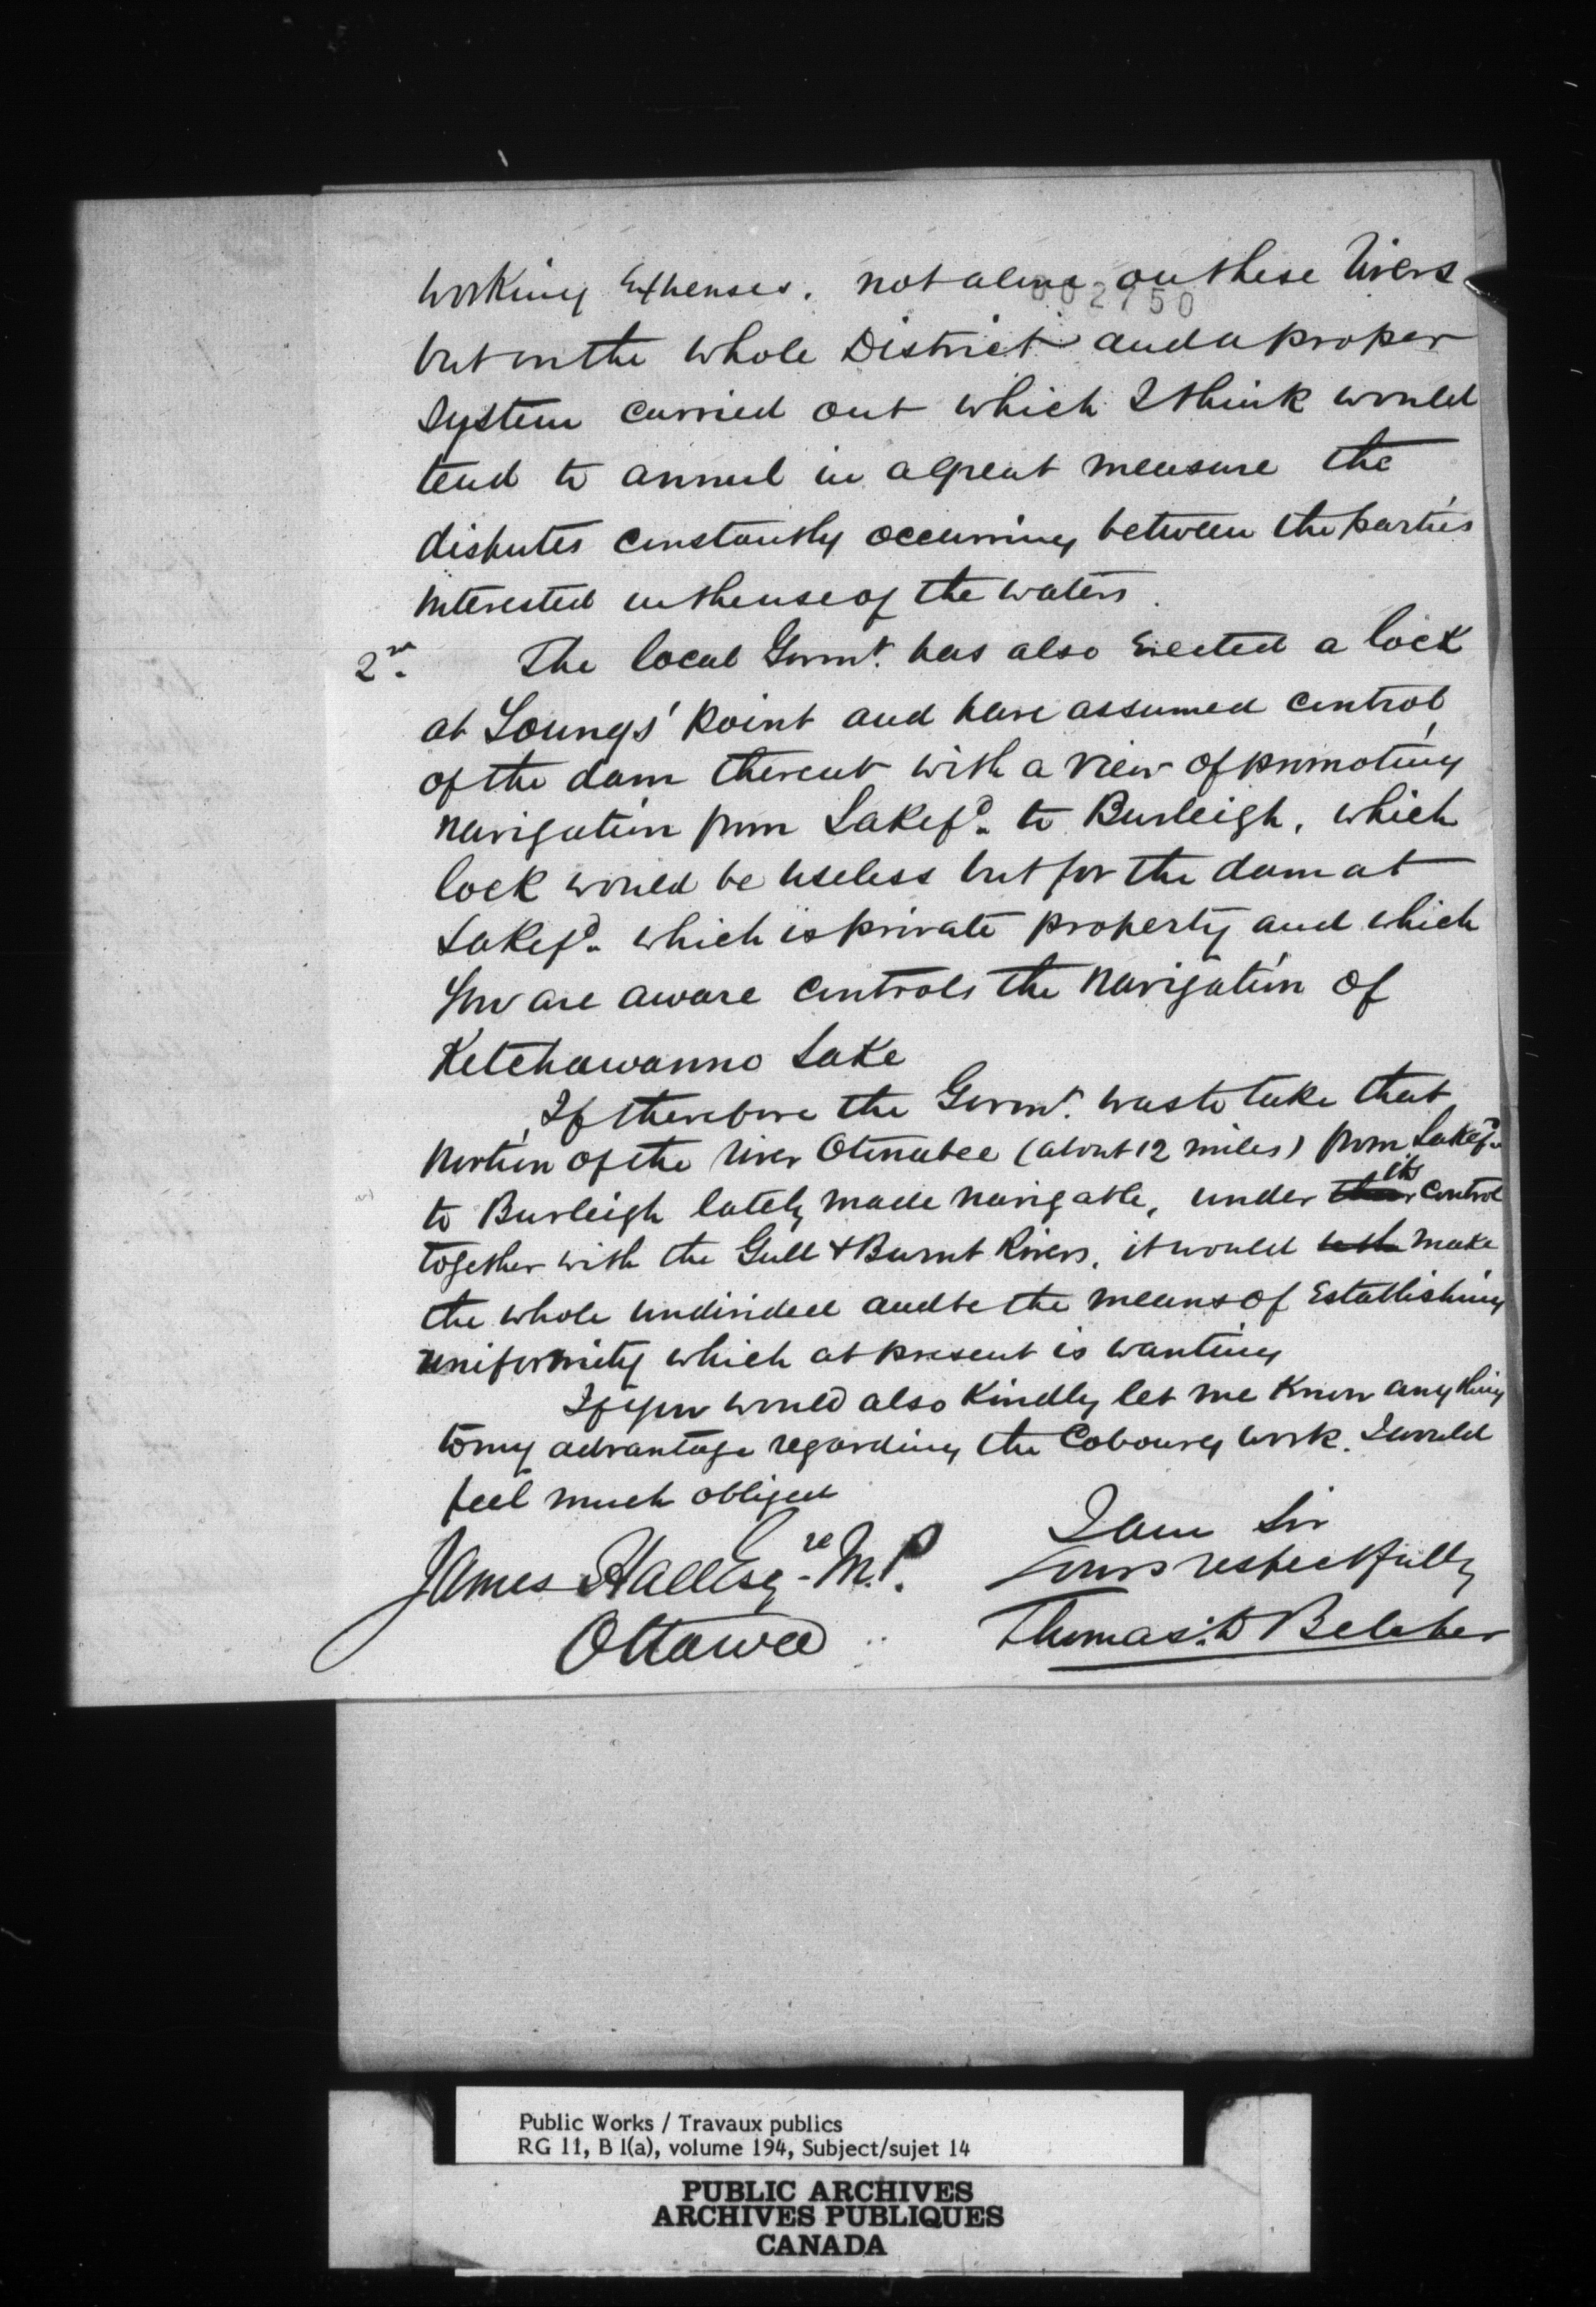 working Expenses. not alone on these rivers
002750
but on the whole District and a proper
System carried out which I think would
tend to annul in a great measure the
disputes constantly occurring between the parties
interested in the use of the waters.
2nd. The local Govmt. has also Erected a lock
at Youngs' Point and have assumed control
of the dam thereat with a view of promoting
navigation from Lakefd. to Burleigh, which
lock would be useless but for the dam at
Lakefd. which is private property and which
you are aware controls the navigation of
Ketchawanno Lake
If therefore the Govmt. was to take that
portion of the river Otonabee (about 12 miles) from Lakefd.
its
to Burleigh lately made navigable, under their control
together with the Gull & Burnt Rivers, it would make
the whole undivided and be the means of Establishing
uniformity which at present is wanting
If you would also Kindly let me Know anything
to my advantage regarding the Cobourg work. I would
feel much obliged
I am Sir
James Hall Esqre. M.P. Yours respectfully
Ottawa Thomas. D Belcher
Public Works / Travaux publics
RG 11, B 1(a), volume 194, Subject/sujet 14
PUBLIC ARCHIVES
ARCHIVES PUBLIQUES
CANADA